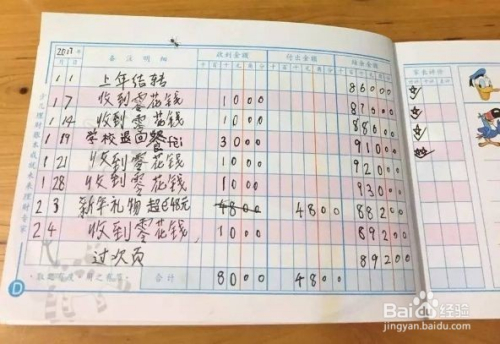 2017年
月 日 备注 明细 收到金额 付出金额 结余金额
千 百 十 元 角 分 千 百 十 元 角 分 千 百 十 元 角 分
1 1 上年结转 86000
1 7 收到零花钱 1000 87000
1 14 收到零花钱 1000 88000
1 19 学校 3000 91000
1 21 收到零花钱 1000 92000
1 28 收到零花钱 1000 93000
2 3 新年礼物 4800 4800 88200
2 4 收到零花钱 1000 89200
过次页 89200
合计 8000 4800
D
Baidu经验
jingyan.baidu.com